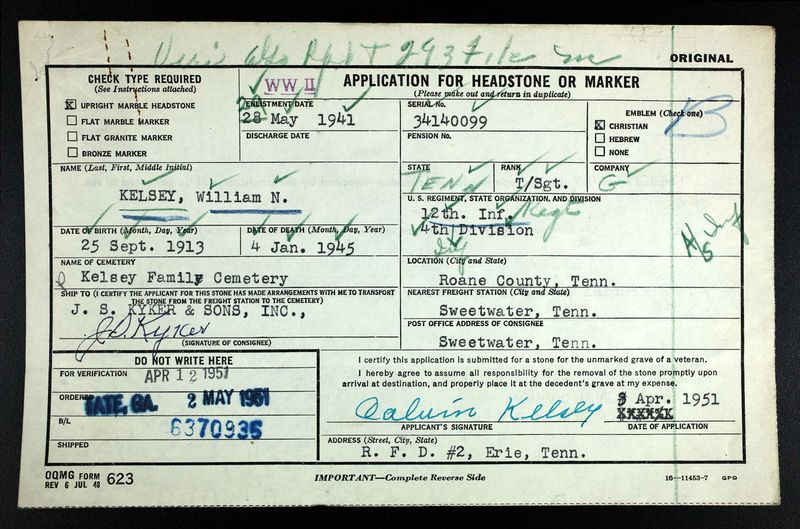 293 File
ORIGINAL
CHECK TYPE REQUIRED
(See Instructions attached)
UPRIGHT MARBLE HEADSTONE
FLAT MARBLE MARKER
FLAT GRANITE MARKER
BRONZE MARKER
WW II
APPLICATION FOR HEADSTONE OR MARKER
(Please make out and return in duplicate)
ENLISTMENT DATE
28 May 1941
DISCHARGE DATE
SERIAL No.
34140099
PENSION No.
EMBLEM (Check one)
CHRISTIAN
HEBREW
NONE
B
NAME (Last, First, Middle Initial)
KELSEY, William N.
STATE
TENN
RANK
T/Sgt.
COMPANY
G
U. S. REGIMENT, STATE ORGANIZATION, AND DIVISION
12th. Inf. Regt
4th Division
Div
DATE OF BIRTH (Month, Day, Year)
25 Sept. 1913
DATE OF DEATH (Month, Day, Year)
4 Jan. 1945
NAME OF CEMETERY
Kelsey Family Cemetery
LOCATION (City and State)
Roane County, Tenn.
SHIP TO (I CERTIFY THE APPLICANT FOR THIS STONE HAS MADE ARRANGEMENTS WITH ME TO TRANSPORT THE STONE FROM THE FREIGHT STATION TO THE CEMETERY)
J. S. KYKER & SONS, INC.,
J.S. Kyker
(SIGNATURE OF CONSIGNEE)
NEAREST FREIGHT STATION (City and State)
Sweetwater, Tenn.
POST OFFICE ADDRESS OF CONSIGNEE
Sweetwater, Tenn.
DO NOT WRITE HERE
FOR VERIFICATION
APR 12 1951
ORDERED
TATE, GA. 2 MAY 1951
B/L
6370935
SHIPPED
I certify this application is submitted for a stone for the unmarked grave of a veteran.
I hereby agree to assume all responsibility for the removal of the stone promptly upon
arrival at destination, and properly place it at the decedent's grave at my expense.
Calvin Kelsey
3 Apr. 1951
APPLICANT'S SIGNATURE
DATE OF APPLICATION
ADDRESS (Street, City, State)
R. F. D. #2, Erie, Tenn.
OQMG FORM 623
REV 6 JUL 48
IMPORTANT—Complete Reverse Side
16—11453-7 GPO